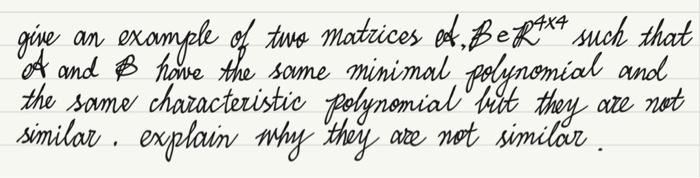 give an example of two matrices A, B ∈ R^{4×4} such that
A and B have the same minimal polynomial and
the same characteristic polynomial but they are not
similar. explain why they are not similar.